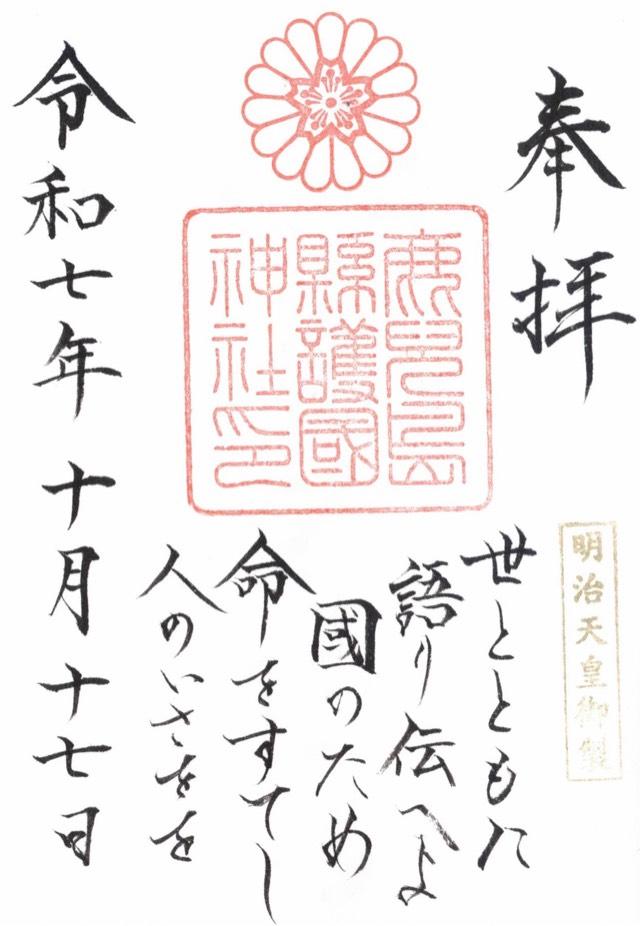 奉拝
鹿児島
縣護國
神社印
明治天皇御製
世とともに
語り伝へよ
國のため
命をすてし
人のいさをを
令和七年 十月 十七日